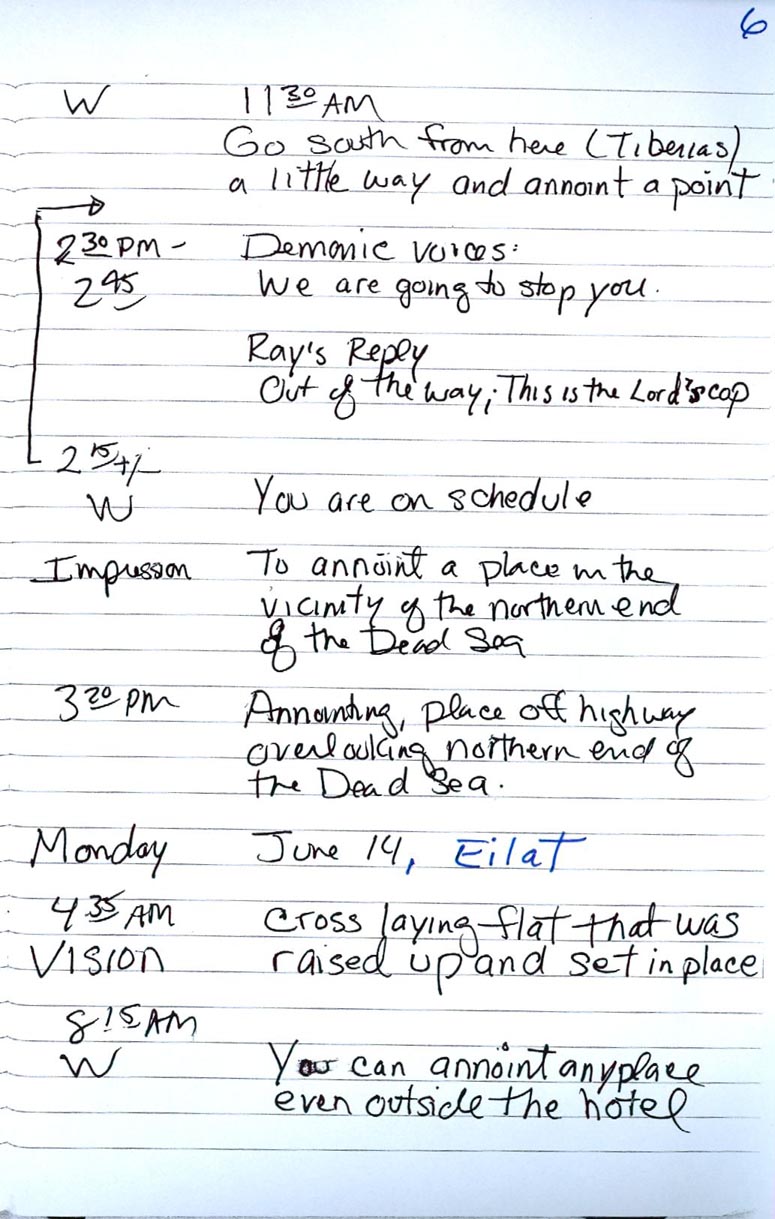 6
W 11 30 AM
Go south from here (Tiberias)
a little way and annoint a point
2 30 PM - Demonic voices:
2 45 We are going to stop you.
Ray's Reply
Out of the way; This is the Lord's cop
2 15 +/-
W You are on schedule
Impression To annoint a place in the
vicinity of the northern end
of the Dead Sea
3 20 PM Annointing, place off highway
overlooking northern end of
the Dead Sea.
Monday June 14, Eilat
4 35 AM Cross laying flat that was
Vision raised up and set in place
8 15 AM
W You can annoint anyplace
even outside the hotel